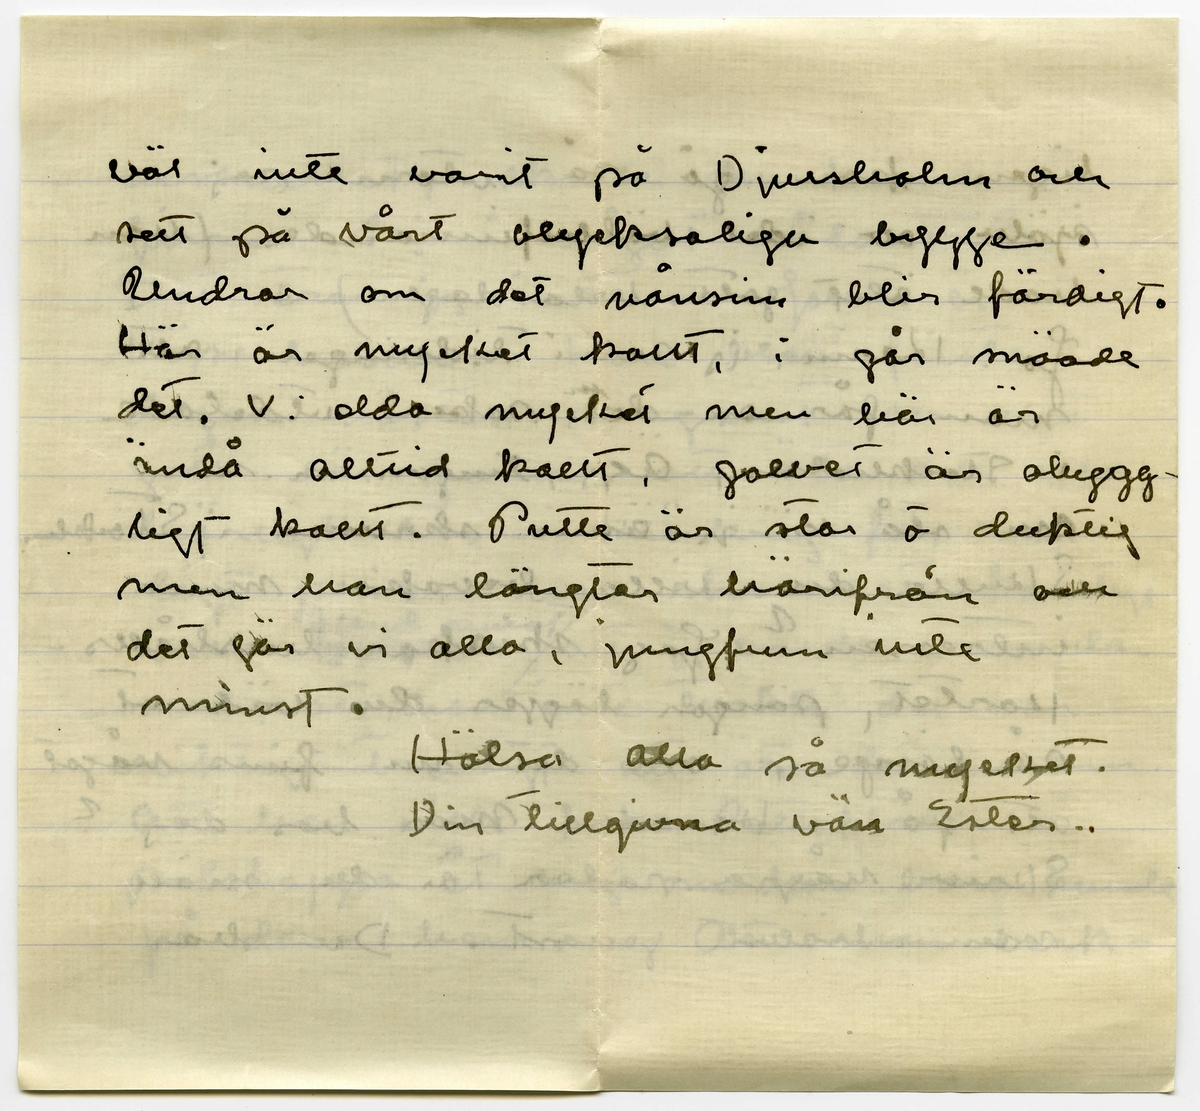 väl inte varit på Djursholm och
sett på vårt olycksaliga bygge.
Undrar om det nånsin blir färdigt.
Här är mycket kallt, i går snöade
det. Vi elda mycket men här är
ändå alltid kallt, golvet är oluggg-
ligt kallt. Putte är stor o duktig
men han längtar härifrån och
det gör vi alla, jungfrun inte
minst.
Hälsa alla så mycket.
Din tillgivna vän Ester..